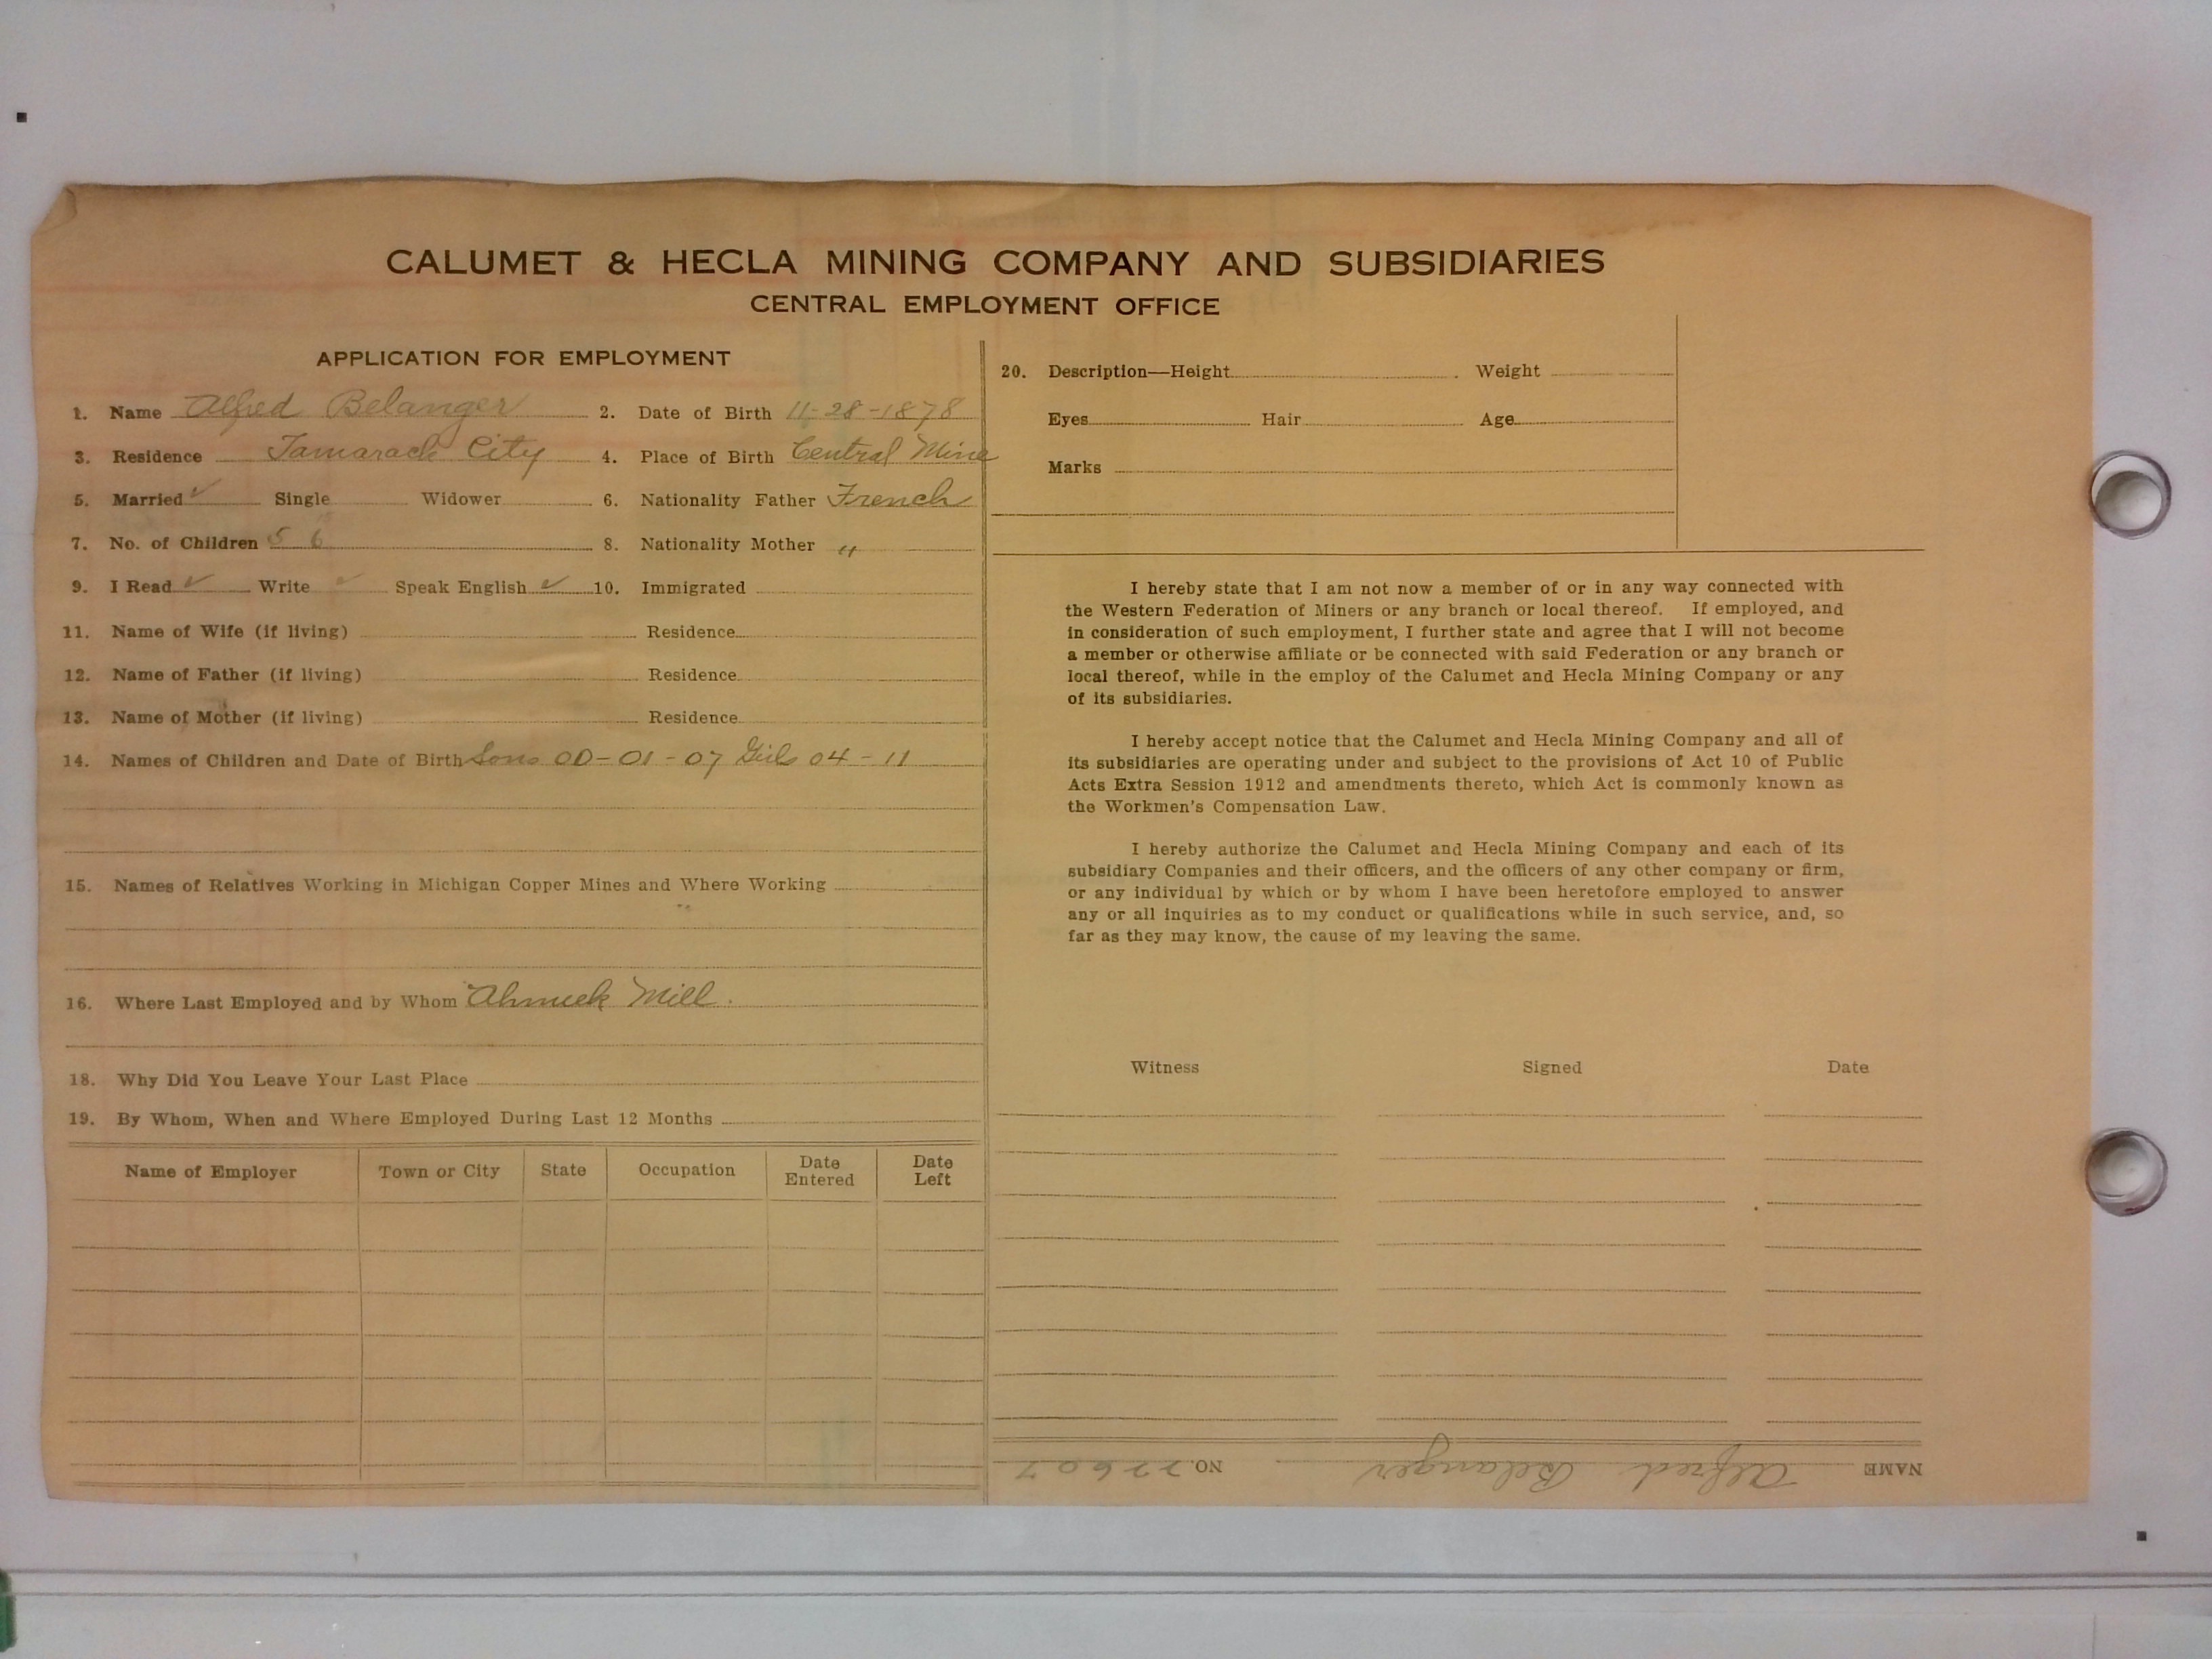 CALUMET & HECLA MINING COMPANY AND SUBSIDIARIES
CENTRAL EMPLOYMENT OFFICE
APPLICATION FOR EMPLOYMENT
1. Name Alfred Belanger 2. Date of Birth 11-28-1878
3. Residence Tamarack City 4. Place of Birth Central Mine
5. Married ✓ Single Widower 6. Nationality Father French
7. No. of Children 5 6 8. Nationality Mother "
9. I Read ✓ Write ✓ Speak English ✓ 10. Immigrated
11. Name of Wife (if living) Residence
12. Name of Father (if living) Residence
13. Name of Mother (if living) Residence
14. Names of Children and Date of Birth Sons 00-01-07 Girls 04-11
15. Names of Relatives Working in Michigan Copper Mines and Where Working
16. Where Last Employed and by Whom Ahmeek Mill.
18. Why Did You Leave Your Last Place
19. By Whom, When and Where Employed During Last 12 Months
Name of Employer Town or City State Occupation Date Entered Date Left
20. Description—Height Weight
Eyes Hair Age
Marks
I hereby state that I am not now a member of or in any way connected with
the Western Federation of Miners or any branch or local thereof. If employed, and
in consideration of such employment, I further state and agree that I will not become
a member or otherwise affiliate or be connected with said Federation or any branch or
local thereof, while in the employ of the Calumet and Hecla Mining Company or any
of its subsidiaries.
I hereby accept notice that the Calumet and Hecla Mining Company and all of
its subsidiaries are operating under and subject to the provisions of Act 10 of Public
Acts Extra Session 1912 and amendments thereto, which Act is commonly known as
the Workmen's Compensation Law.
I hereby authorize the Calumet and Hecla Mining Company and each of its
subsidiary Companies and their officers, and the officers of any other company or firm,
or any individual by which or by whom I have been heretofore employed to answer
any or all inquiries as to my conduct or qualifications while in such service, and, so
far as they may know, the cause of my leaving the same.
Witness Signed Date
NAME Alfred Belanger NO. 22607